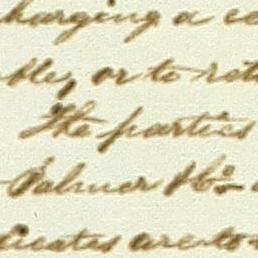 charging a
ble, or to
The parties
Palmer & Co
dicates are to